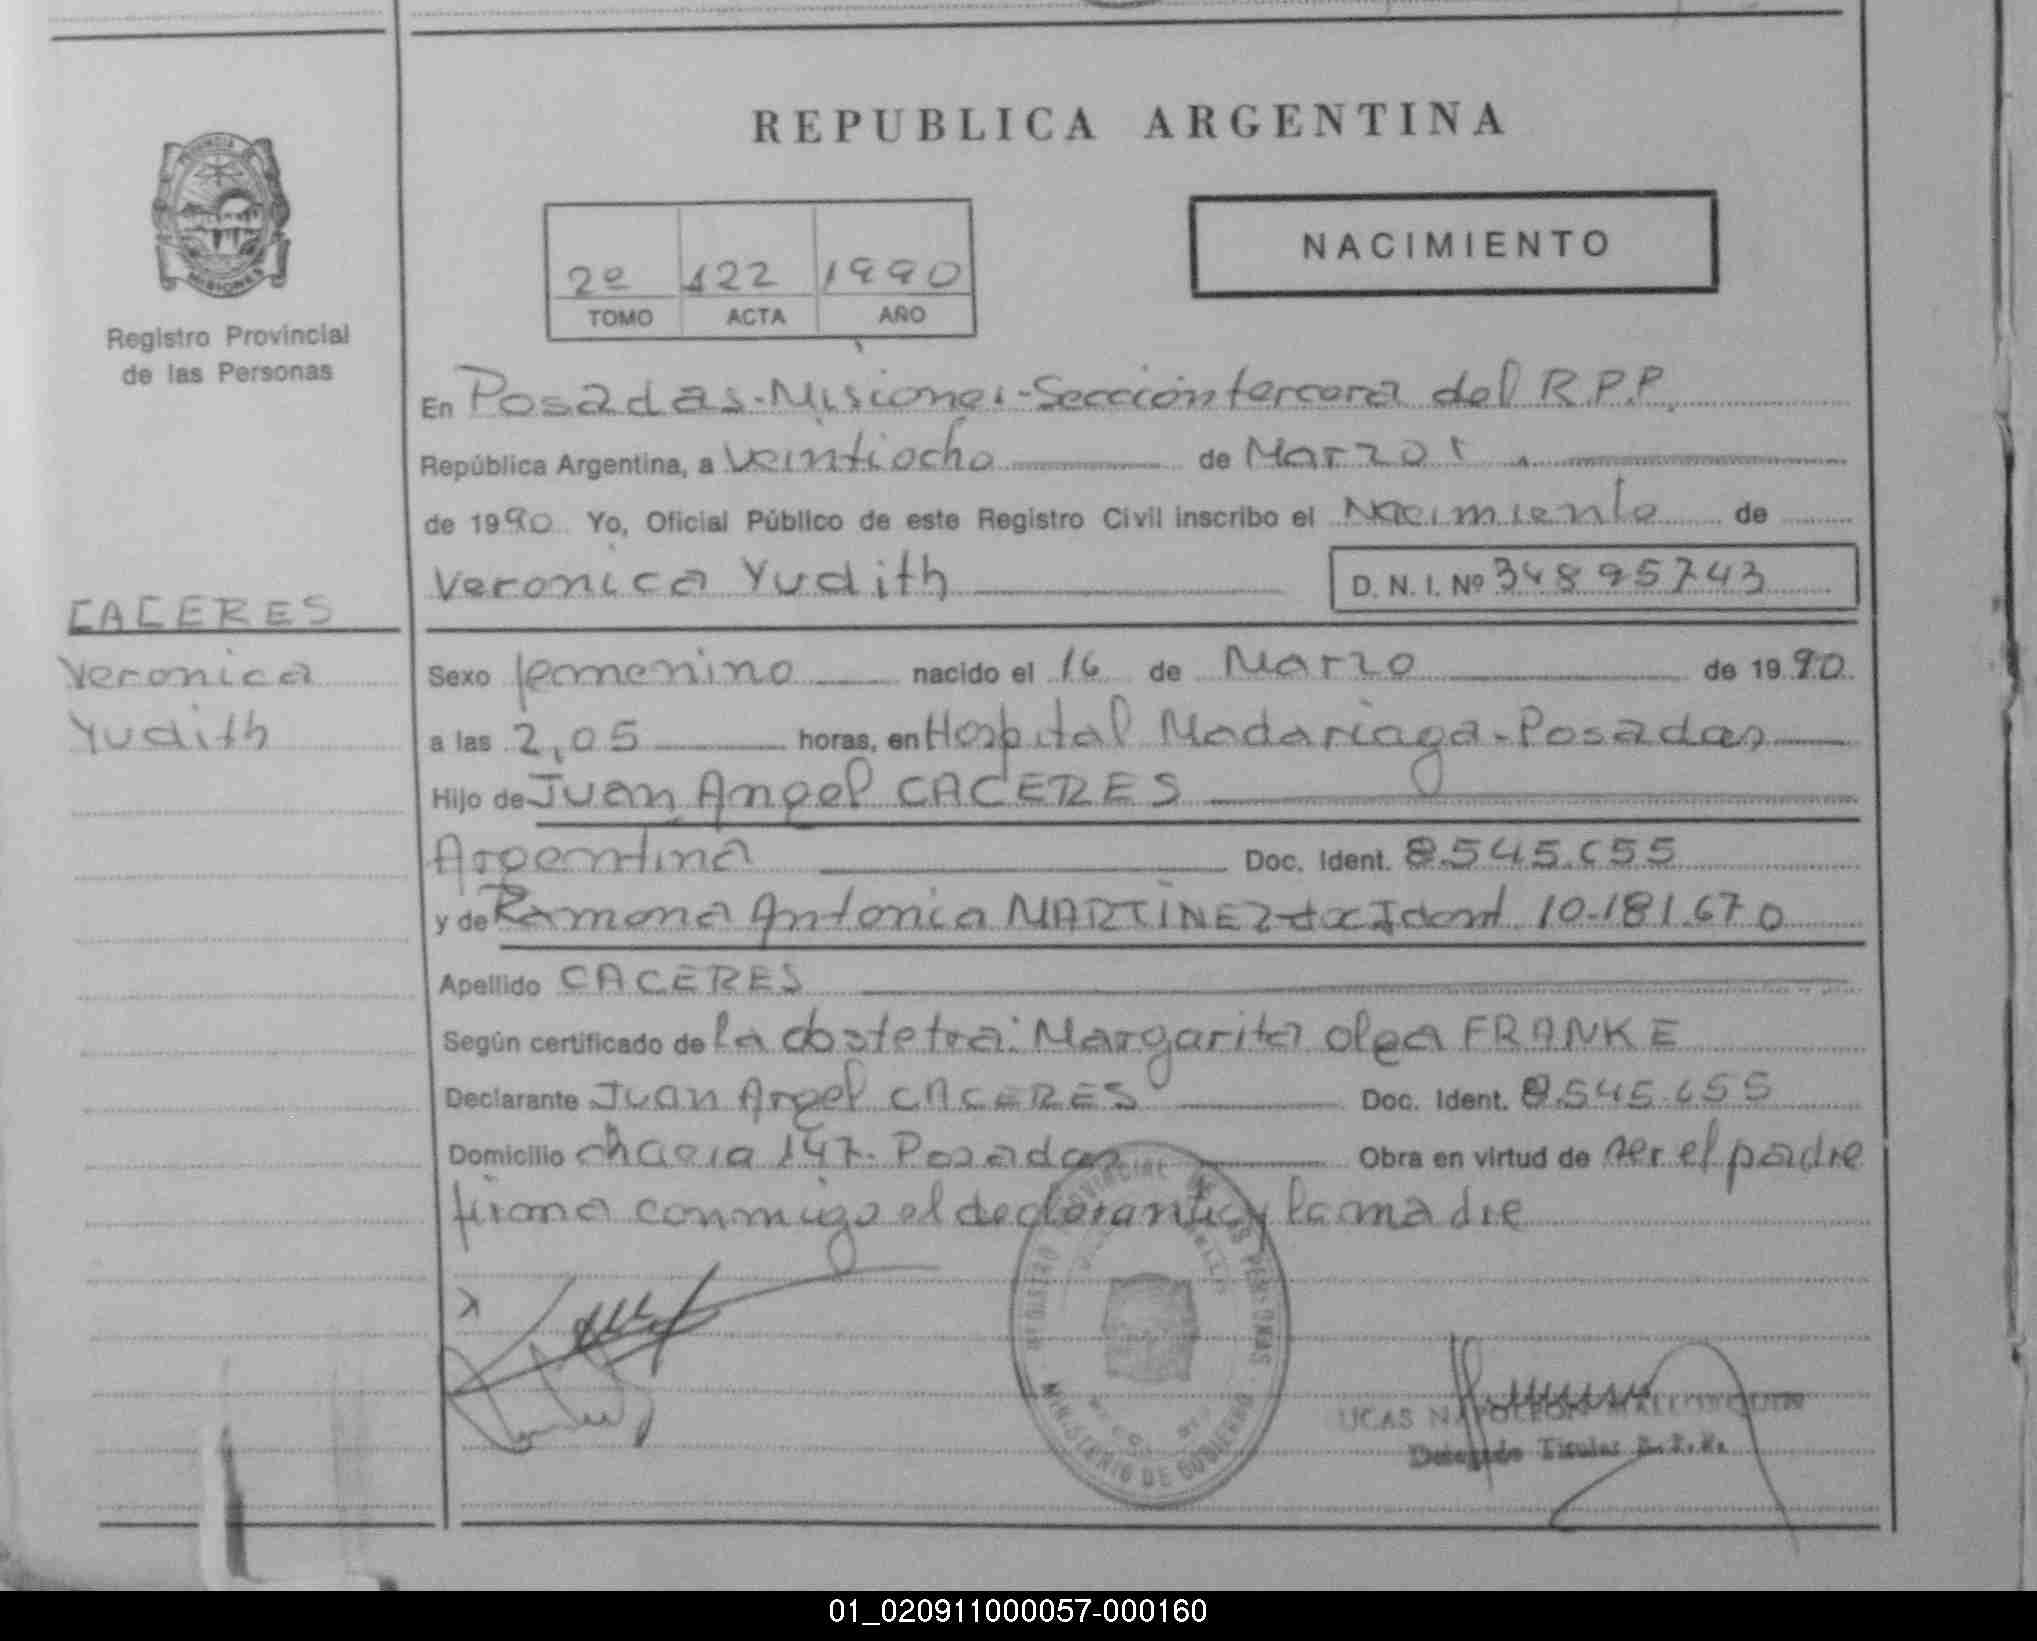 REPUBLICA ARGENTINA
PROVINCIA
MISIONES
Registro Provincial
de las Personas
NACIMIENTO
2º 122 1990
TOMO ACTA AÑO
En Posadas-Misiones-Sección tercera del R.P.P.
República Argentina, a veintiocho de Marzo
de 1990 Yo, Oficial Público de este Registro Civil inscribo el Nacimiento de
Veronica Yudith D. N. I. Nº 34895743
CACERES
Veronica
Yudith
Sexo femenino nacido el 16 de Marzo de 1990
a las 2,05 horas, en Hospital Madariaga-Posadas
Hijo de Juan Angel CACERES
Argentina Doc. Ident. 8.545.655
y de Ramona Antonia MARTINEZ doc Ident 10.181.670
Apellido CACERES
Según certificado de la obstetra: Margarita olga FRANKE
Declarante Juan Angel CACERES Doc. Ident. 8.545.655
Domicilio chacra 147- Posadas Obra en virtud de ser el padre
firma conmigo el declarante y la madre
REGISTRO PROVINCIAL DE LAS PERSONAS
MINISTERIO DE GOBIERNO
UCAS NAPOLEON
Delegado Titular
01_020911000057-000160